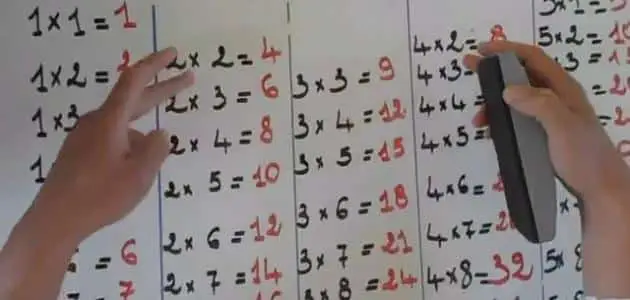 1 × 1 = 1
1 × 2 =
1 × 3
= 6
= 7
2 × 2 = 4
2 × 3 = 6
2 × 4 = 8
2 × 5 = 10
2 × 6 = 12
2 × 7 = 14
3 × 3 = 9
3 × 4 = 12
3 × 5 = 15
3 × 6 = 18
3 × 7 = 21
3 × 8 = 24
4 × 2 = 8
4 × 3 =
4 × 4 =
4 × 5 =
4 × 6 =
4 × 7 =
4 × 8 = 32
5 × 2 =
× 3 =
5 × 8